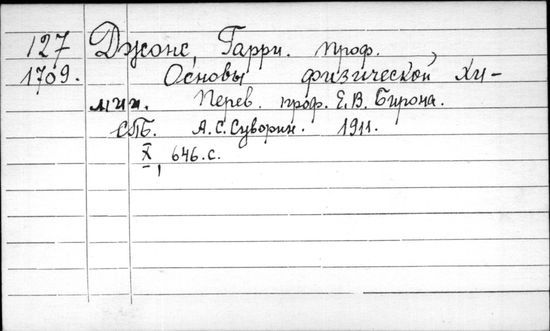 127 Джонс, Гарри. проф.
1709. Основы физической хи-
мии. Перев. проф. Е.В. Бирона.
СПБ. А.С. Суворин. 1911.
X, 646. с.